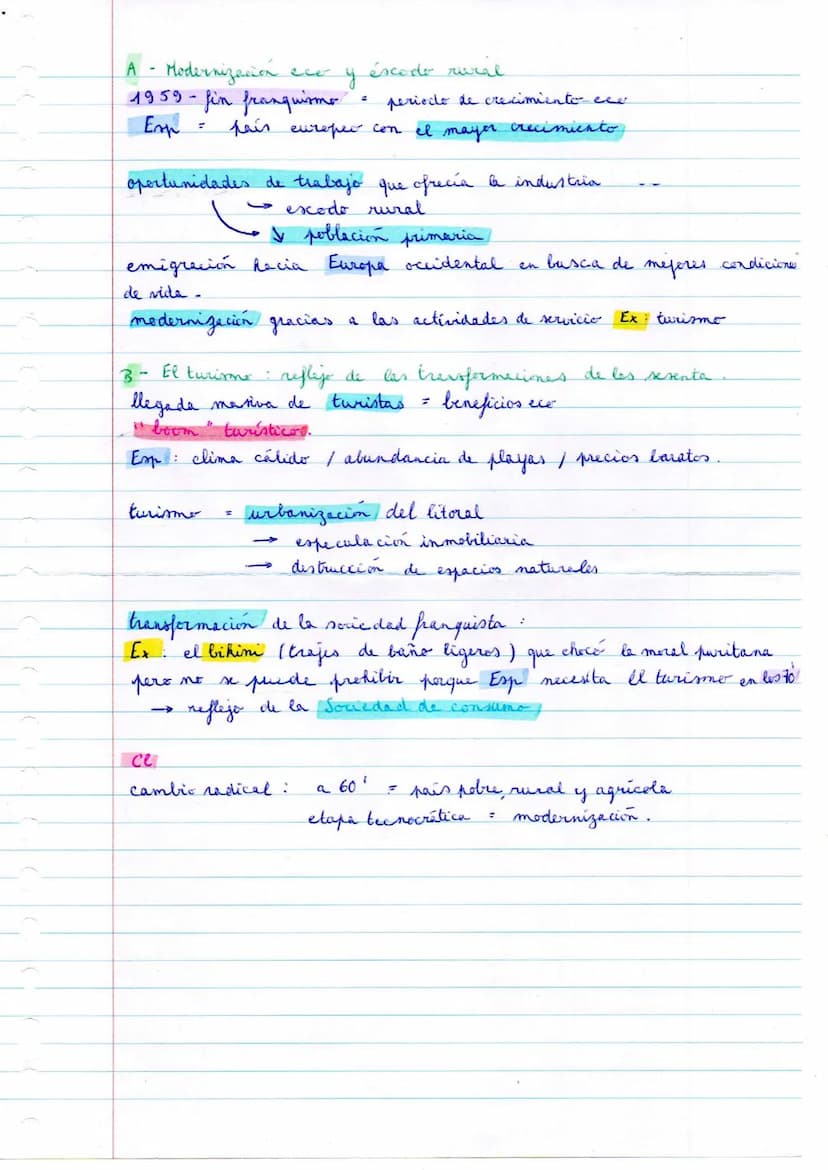 A - Modernización eco y éxcodo rural
1959 - fin franquismo = periodo de crecimiento eco
Esp = país europeo con el mayor crecimiento
oportunidades de trabajo que ofrecía la industria --
→ escodo rural
↘ población primaria
emigración hacia Europa occidental en busca de mejores condiciones
de vida.
modernización gracias a las actividades de servicio Ex : turismo
B - El turismo : reflejo de las transformaciones de los sesenta.
llegada masiva de turistas = beneficios eco
"boom" turísticos.
Esp : clima cálido / abundancia de playas / precios baratos.
turismo = urbanización del litoral
→ especulación inmobiliaria
→ destrucción de espacios naturales
transformación de la sociedad franquista :
Ex : el bikini (trajes de baño ligeros) que chocó la moral puritana
pero no se puede prohibir porque Esp necesita el turismo en los 70'
→ reflejo de la Sociedad de consumo
CL
cambio radical : a 60' = país pobre, rural y agrícola
etapa tecnocrática = modernización.